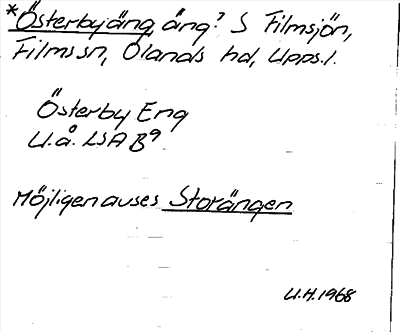 *Österbyäng äng? S Filmsjön,
Films sn, Olands hd, Upps.l.
Österby Eng
U.å. LSA B9
Möjligen avses Storängen
U.H. 1968